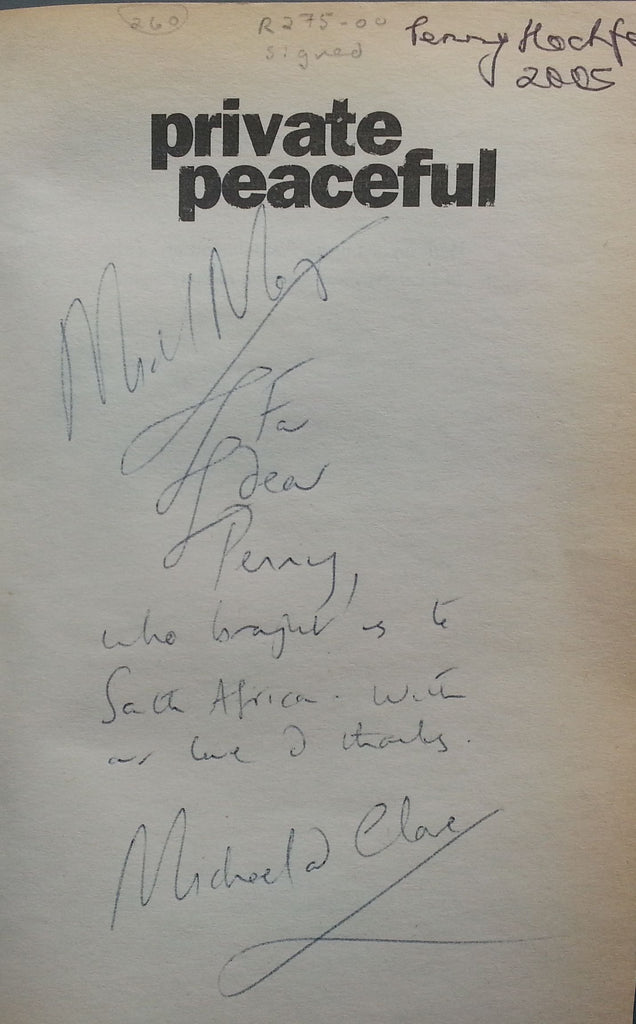 260 R275-00 Penny Hochfe
signed 2005
private
peaceful
For
Dear
Penny,
who brought us to
South Africa. With
our love & thanks.
Michael & Clare